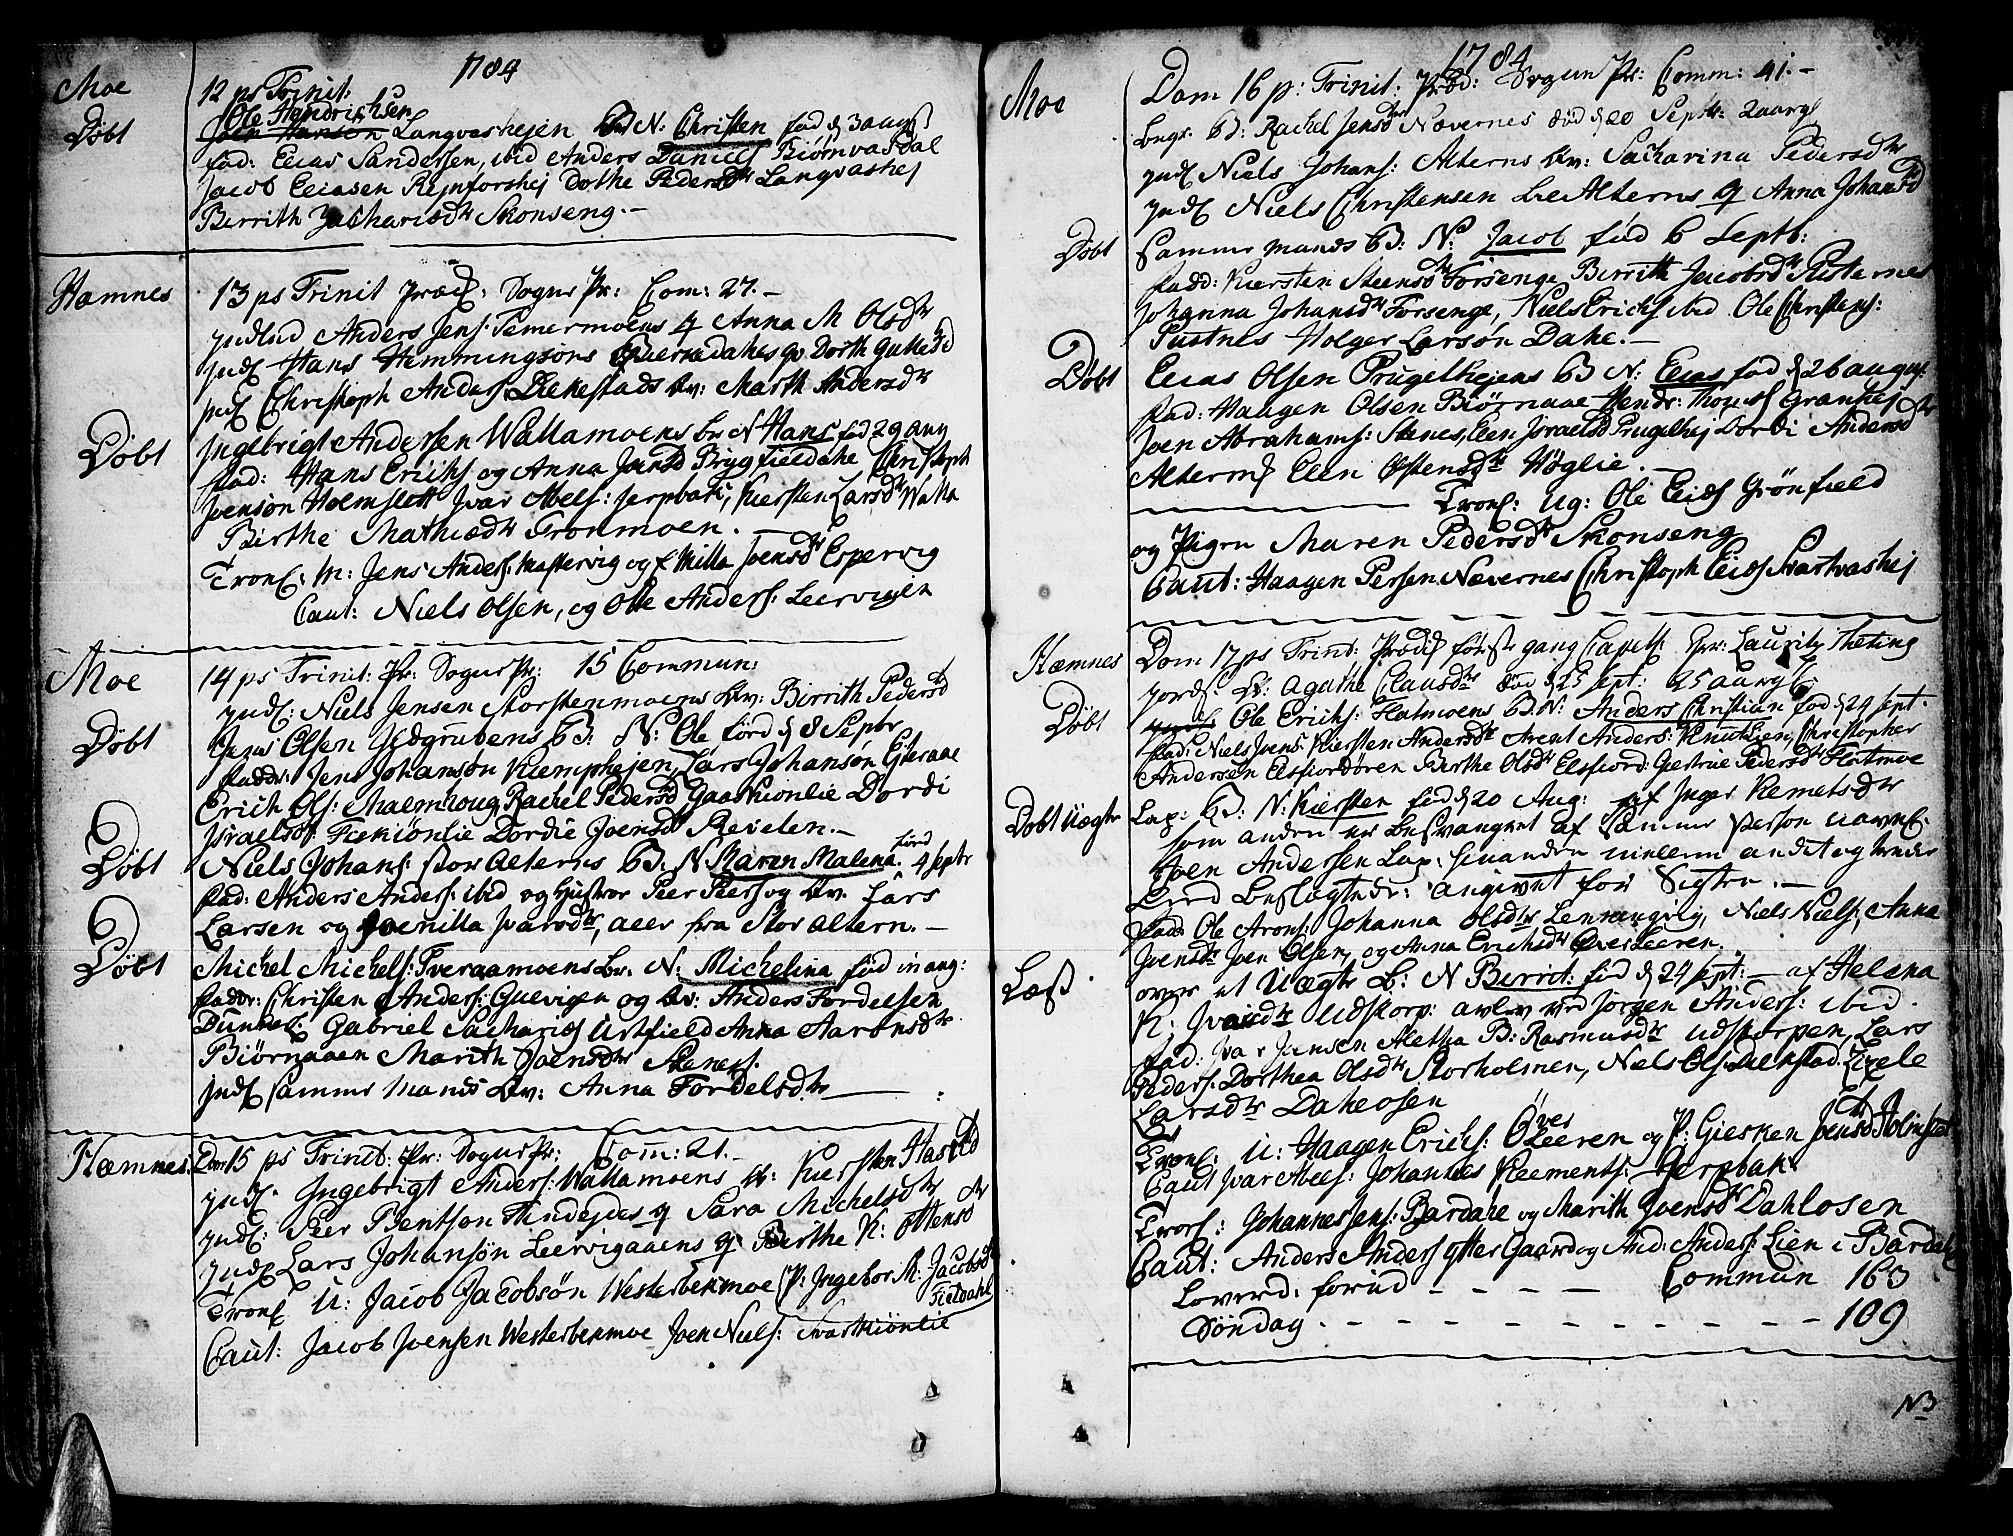 1784
Moe
12 ps Trinit:
Ole Hendrichsen
Døbt
Joen Hansen Langvashejen N: Christen fød d 3 aug
fad: Elias Sandersen, ibid Anders Daniels Biørnvasdal
Jacob Eliasen Rejnforshej Dothe Pedersdtr Langvashej
Berrith Zachariædtr Skonseng.
Hæmnes
13 ps Trinit Præd: Sogne Pr: Com: 27.
Indled Anders Jens: Temermoens q Anna M Olsdtr
Indl Hans Hemmingsøns dahes qv Dorth
Indl Christoph Anders: Leekestads qv: Marth Andersdtr
Døbt
Ingebrigt Andersen Wallamoens br N Hans fød 29 aug
fad: Hans Erichs og Anna Joensd Brygfieldahe, Christoph
Joensøn Holmslett Ivar Abels: Jerpbak, Kiersten Larsdtr Walla
Birthe Mathiædtr Tronmoen.
Tronl: M: Jens Anders og P Milla Joensdtr Espervig
Caut: Niels Olsen, og Ole Anders: Leervigen
Moe
14 ps Trinit: Pr: Sogne Pr: 15 Commun:
Indl: Niels Jensen Storstenmoens Qv: Birrith Pedersd
Døbt
Jens Olsen Ildgrubens B: N: Ole förd d 8 Septbr
faddr: Jens Johansøn Kiemphejen, Lars Johansøn Ytteraae
Erich Ols: Malmhoug Rachel Pedersd Gaaskionlie Dordi
Israelsdt: Dordie Joensdtr Revelen.
Døbt
Niels Johans: stor Alterns B: N Maren Malena. förd 4 septbr
fad: Anders Anders: ibid og Hustroe Peer Peers og Qv. Lars
Larsen og Pernilla Ivarsdtr, alle fra Stor Altern.
Døbt
Michel Michels: Tveraamoens Br. N: Michelina fød in aug:
faddr: Christen Anders: Gulvigen og Qv: Anders Fordelsen
Gabriel Sachariæs Urtfield Anna Aaronsdtr
Biørnaaen Marith Joensdtr Stenes.
Indl samme Mands Qv: Anna Fordelsdtr
Hæmnes
Dom 15 ps Trinit: Pr: Sogne Pr: Com: 21.
Indl. Ingebrigt Anders: Wallamoens Qv: Kiersten
Indl: Peer Bentsøn q Sara Michelsdtr
Indl Lars Johansøn Leervigaaens q Berthe K: Ottensd
Tronl U: Jacob Jacobsøn Westerbekmoe P: Ingebor M: Jacobsd
Fieldahl
Caut: Jacob Joensen Westerbekmoe Joen Niels: Svartkiönlie
1784
Moe
Dom 16 p: Trinit: Præd: Sogne Pr: Comm: 41.
Begr. B: Rachel Jensdtr Nævernes død d 20 Septbr: 2 aargl
Indl Niels Johans: Alterns Qv: Sacharina Pedersdtr
Indl Niels Christensen LilAlterns q Anna Johansd
Døbt
samme mands B: N: Jacob fød 6 Septb:
fadd: Kiersten Steensdtr Forsenge Birrith Jacobsdtr Pusternes
Johanna Johansdtr Forsenge, Niels Erichs ibid Ole Christens:
Pustnes Holger Larsøn Dahe.
Døbt
Elias Olsen Prugelhejens B N: Elias fød d 26 augus.
fad: Haagen Olsen Biørnaae Hendr: Thomæs Granhej
Joen Abrahams: Stenes, Elen Israelsd Prugelhej Dordi Andersdtr
Alterns Elen Østensdtr Höglie.
Tronl: ug: Ole Eliæs Grönfield
og Pigen Maren Pedersdtr Skonseng
Caut: Haagen Persen Nævernes Christoph Eliæs Svartvashej
Hæmnes
Dom 17 ps Trinit: Prædis förste gang Capell: Hr: Lauritz Theting
Jords. Qv: Agathe Clausdtr død d 25 sept: 25 aargl.
Døbt
Ole Erichs: Flatmoens B: N: Anders Christian fød d 24 sept.
fad: Niels Joens: Kiersten Andersdtr Arent Anders: Knutlien, Christopher
Andersen Elsfiordören Birthe Olsdtr Elsfiord: Gertrue Pedersdtr Flatmoe
Døbt Uægte
Lap: B: N: Kiersten fød d 20 Aug: af Inger Klemetsdtr
som anden er besvangret af samme Person navnl:
Joen Andersen Lap: hinanden andet og
Leed beslægtede: angivet for Sigten.
fadr Ole Arons: Johanna Olsdtr, Niels Niels: Anna
Joensdtr Joen Olsen, og Anna Erichsdtr OverLeeren.
Læst
over et Uægte B: N Berrit: fød d 24 sept: af Helena
K: Ivarsdtr Udskorp: avlev ved Jörgen Anders: ibid.
fad: Ivar Jensen Aletha B: Rasmusdtr Udskorpen, Lars
Peders: Dorthea Olsdtr Storholmen, Niels Ols: Leekstad. Zizele
Larsdtr Daheosen
Tronl: U: Haagen Erichs: Öveleeren og P: Giesken Joensdtr Holmslet
Caut Ivar Abels: Johannes Klements: Jerpbak
Tronl: Johannes Jens: Bardahe og Marith Joensdtr Dahlosen
Caut: Anders Anders ytter Gaard og And: Anders: Lien i Bardahe
Loverd: forud - - - - Commun 163
Söndag - - - - - - - - - - 109
NB